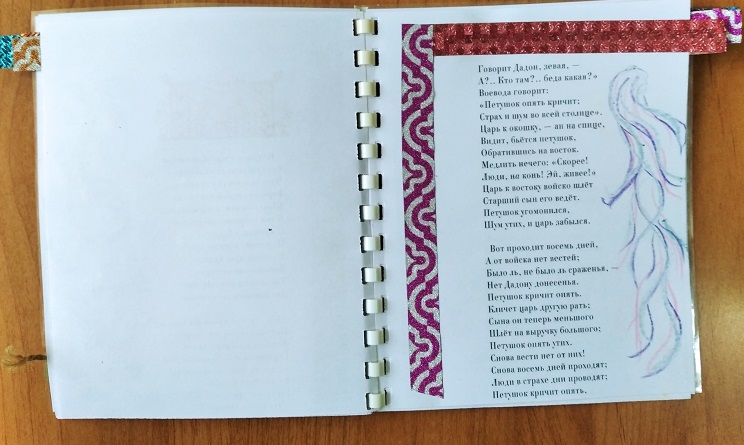 Говорит Дадон, зевая, —
А?.. Кто там?.. беда какая?»
Воевода говорит:
«Петушок опять кричит;
Страх и шум во всей столице».
Царь к окошку, — ан на спице,
Видит, бьётся петушок,
Обратившись на восток.
Медлить нечего: «Скорее!
Люди, на конь! Эй, живее!»
Царь к востоку войско шлёт
Старший сын его ведёт.
Петушок угомонился,
Шум утих, и царь забылся.

Вот проходит восемь дней,
А от войска нет вестей;
Было ль, не было ль сраженья, —
Нет Дадону донесенья.
Петушок кричит опять.
Кличет царь другую рать;
Сына он теперь меньшого
Шлёт на выручку большого;
Петушок опять утих.
Снова вести нет от них!
Снова восемь дней проходят;
Люди в страхе дни проводят;
Петушок кричит опять,